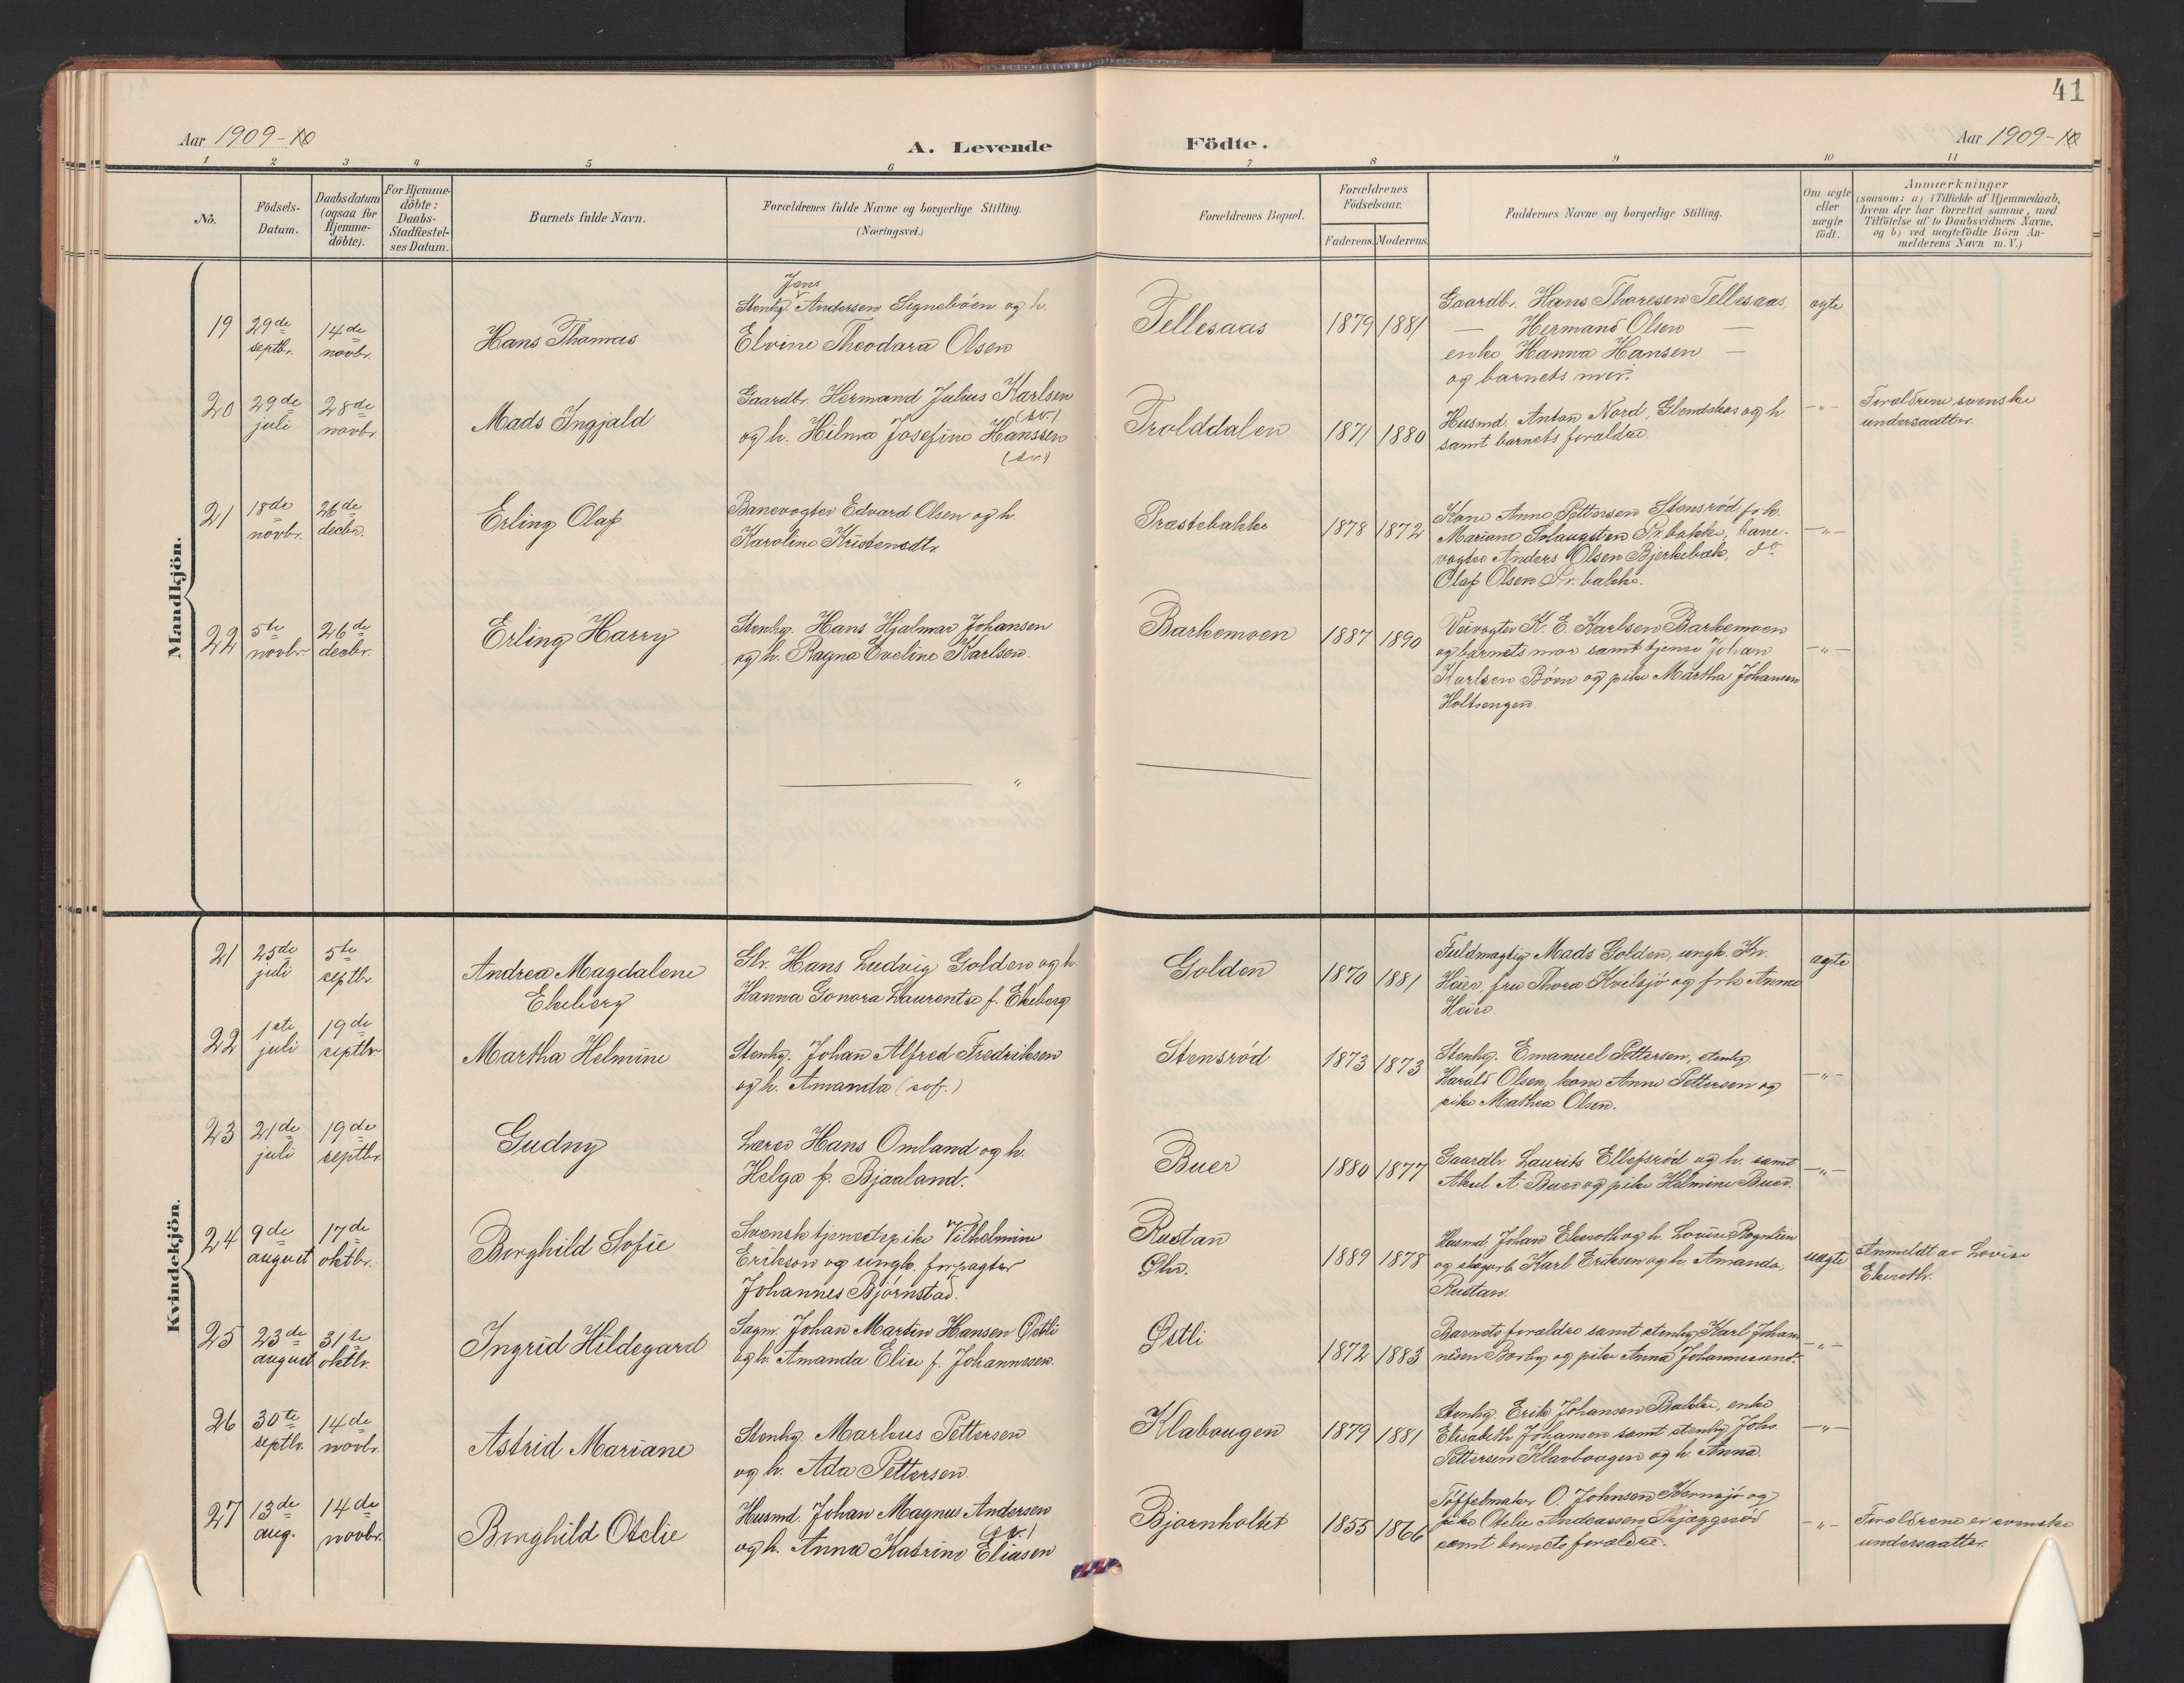 41
Aar 1909-10
A. Levende Födte.
Aar 1909-10
1 2 3 4 5 6 7 8 9 10 11
No.
Födsels-Datum.
Daabsdatum (ogsaa for Hjemme-döbte).
For Hjemme-döbte: Daabs-Stadfæstel-ses Datum.
Barnets fulde Navn.
Forældrenes fulde Navne og borgerlige Stilling.
(Næringsvei.)
Forældrenes Bopæl.
Forældrenes Födselsaar.
Faderens. Moderens.
Faddernes Navne og borgerlige Stilling.
Om ægte eller uægte födt.
Anmærkninger
(saasom: a) i Tilfælde af Hjemmedaab,
hvem der har forrettet samme, med
Tilföielse af to Daabsvidners Navne,
og b) ved uægtefödte Börn An-
melderens Navn m. V.)
Mandkjön.
19 29de septbr. 14de novbr. Hans Thomas
Jens
Stenhg. Andersen Signebøen og h.
Elvine Theodara Olsen
Tellesaas 1879 1881
Gaardbr. Hans Thoresen Tellesaas,
— Hermand Olsen —
enke Hanna Hansen —
og barnets mor.
ægte
20 29de juli 28de novbr. Mads Ingjald
Gaardbr. Hermand Julius Karlsen
(sv.)
og h. Hilma Josefine Hanssen
(sv.)
Trolddalen 1871 1880
Husmd. Anton Nord, Glendskas og h.
samt barnets forældre.
—"—
Forældrene svenske
undersaatter.
21 18de novbr. 26de decbr. Erling Olaf
Banevogter Edvard Olsen og h.
Karoline Kristensdtr.
Præstebakke 1878 1872
Kone Anne Pettersen Stensrød, frk.
Mariane Solaugsten Pr.bakke, bane-
vogter Anders Olsen Bjerkebæk, do
Olaf Olsen Pr.bakke.
—"—
22 5te novbr. 26de decbr. Erling Harry
Stenhg. Hans Hjalmar Johansen
og h. Ragna Eveline Karlsen.
Barkemoen 1887 1890
Veivogter K. E. Karlsen Barkemoen
og barnets mor samt tjener Johan
Karlsen Böen og pike Martha Johansen
Holtsengen.
—"—
Kvindekjön.
21 25de juli 5te septbr. Andrea Magdalene
Ekeberg
Gbr. Hans Ludvig Golden og h.
Hanna Gonora Laurentse f. Ekeberg
Golden 1870 1881
Fuldmægtig Mads Golden, ungk. Kr.
Höier, fru Thora Kvilesjö og frk Anna
Höier.
ægte
22 1ste juli 19de septbr Martha Helmine
Stenhg. Johan Alfred Fredriksen
og h. Amanda (sof.)
Stensrød 1873 1873
Stenhg. Emanuel Pettersen, stenhg
Harald Olsen, kone Anne Pettersen og
pike Mathea Olsen.
—"—
23 21de juli 19de septbr. Gudny
Lærer Hans Omland og h.
Helga f. Bjaaland.
Buer 1880 1877
Gaardbr. Laurits Ellefsrød og h. samt
Aksel A. Buer og pike Helmine Buer.
—"—
24 9de august 17de oktbr. Borghild Sofie
Svensk tjenestepike Vilhelmine
Erikson og ungk. forpagter
Johannes Bjørnstad.
Rustan
1889 1878
Husmd. Johan Ekeroth og h. Lovise Rognlien
og skogarb. Karl Eriksen og h. Amanda,
Rustan.
uægte
Anmeldt av Lovise
Ekeroth.
25 23de august 31te oktbr. Ingrid Hildegard
Sagm. Johan Martin Hansen Østli
og h. Amanda Elise f. Johannesen.
Østli 1872 1883
Barnets forældre samt stenhg Karl Johan-
nesen Borby og pike Anna Johannesend.
—"—
26 30te septbr. 14de novbr. Astrid Mariane
Stenhg. Markus Pettersen
og h. Ada Pettersen.
Klabaugen 1879 1881
Stenhg. Erik Johansen Bakke, enke
Elisabeth Johansen samt stenhg Johs.
Pettersen Klavbaagen og h. Anna.
—"—
27 13de aug. 14de novbr. Borghild Otelie
Husmd. Johan Magnus Andersen
(sv.)
og h. Anna Katrine Eliasen
Bjørnholtet 1855 1866
Töffelmaker O. Johnsen Kornsjö og
pike Otelie Andreassen Skjæggerød
samt barnets forældre.
—"—
Forældrene er svenske
undersaatter.